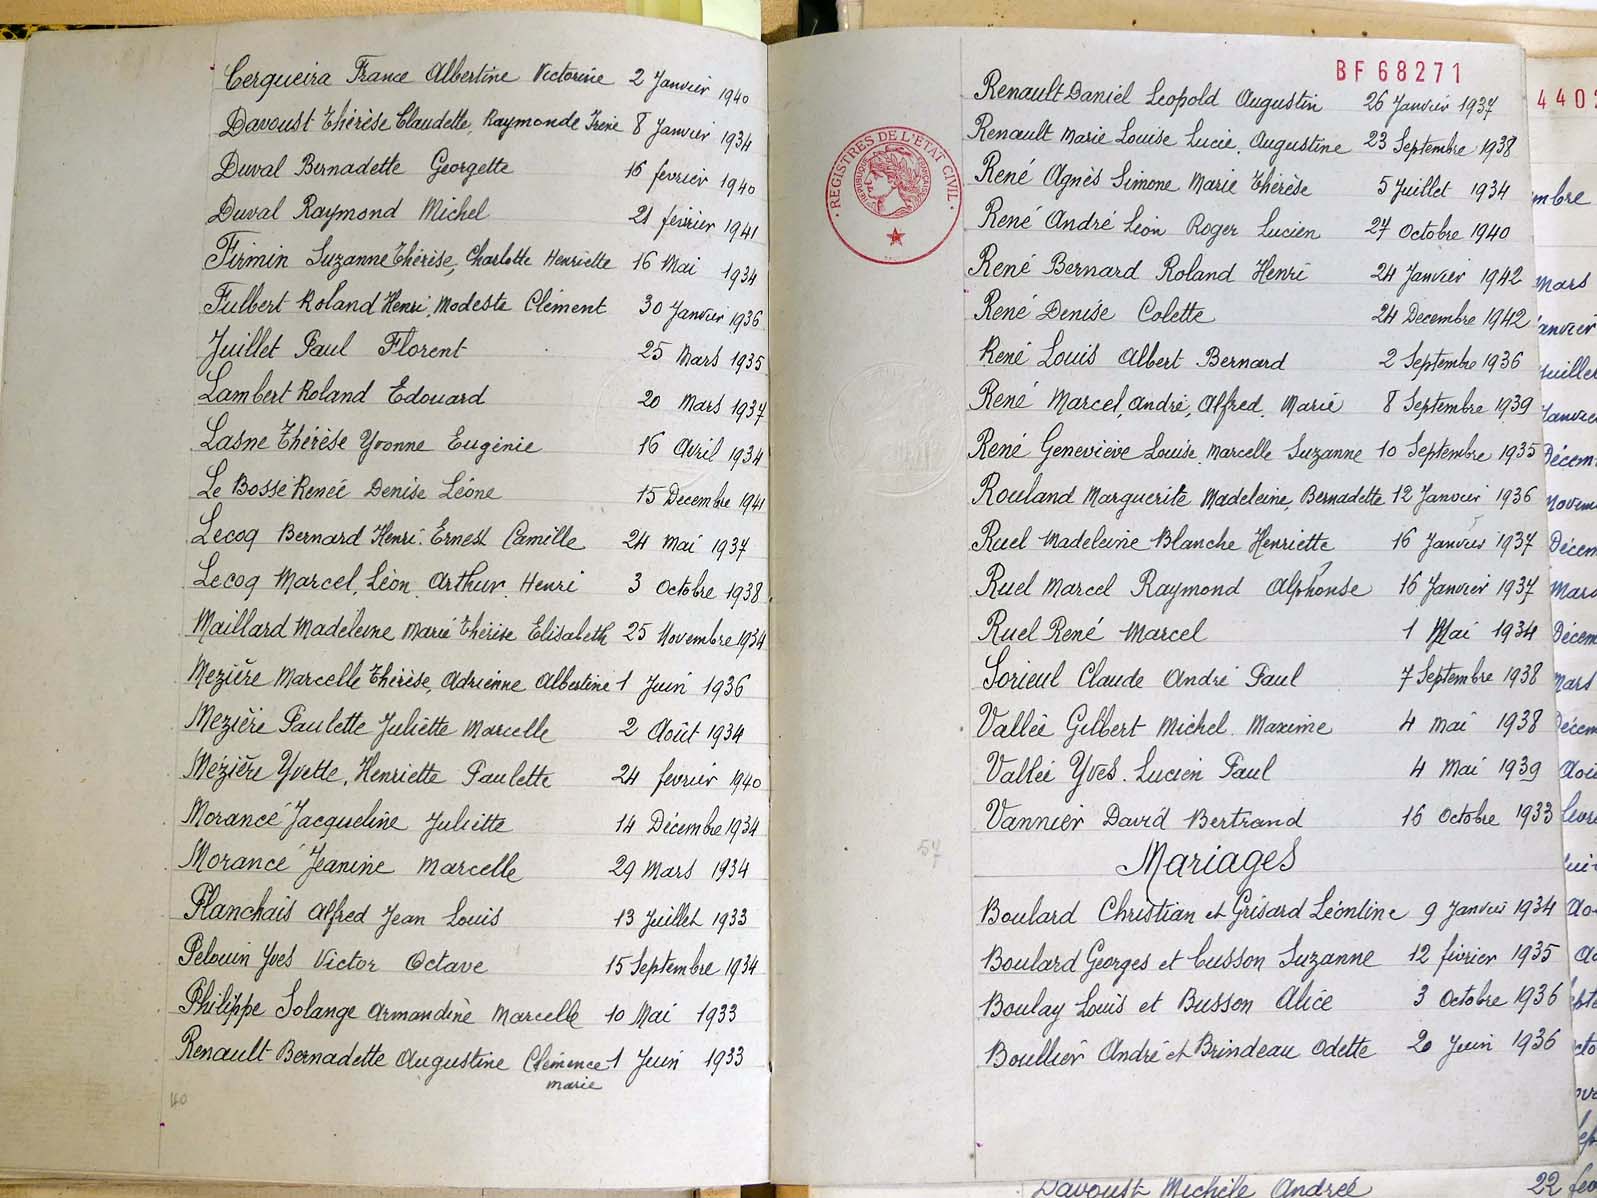 Cerqueira France Albertine Victorine 2 Janvier 1940
Davoust Thérèse Claudette, Raymonde Irène 8 Janvier 1934
Duval Bernadette Georgette 16 février 1940
Duval Raymond Michel 21 février 1941
Firmin Suzanne Thérèse, Charlotte Henriette 16 Mai 1934
Fulbert Roland Henri, Modeste Clément 30 Janvier 1936
Juillet Paul Florent 25 Mars 1935
Lambert Roland Edouard 20 Mars 1937
Lasne Thérèse Yvonne Eugénie 16 Avril 1934
Le Bosse Reneé Denise Léone 15 Decembre 1941
Lecoq Bernard Henri. Ernest Camille 24 Mai 1937
Lecoq Marcel, Léon, Arthur, Henri 3 Octobre 1938
Maillard Madeleine Marie Thérèse Elisabeth 25 Novembre 1934
Mezière Marcelle Thérèse, Adrienne Albertine 1 Juin 1936
Mezière Paulette Juliette Marcelle 2 Août 1934
Mézière Yvette, Henriette Paulette 24 fevrier 1940
Morancé Jacqueline Juliette 14 Décembre 1934
Morancé Jeanine Marcelle 29 Mars 1934
Planchais Alfred Jean Louis 13 Juillet 1933
Pelouin Yves Victor Octave 15 Septembre 1934
Philippe Solange Armandine Marcelle 10 Mai 1933
Renault Bernadette Augustine Clémence 1 Juin 1933
Marie
40
BF 68271
Renault Daniel Leopold Augustin 26 Janvier 1937
Renault Marie Louise Lucie, Augustine 23 Septembre 1938
René Agnès Simone Marie Thérèse 5 Juillet 1934
René André Léon Roger Lucien 27 Octobre 1940
René Bernard Roland Henri 24 Janvier 1942
René Denise Colette 24 Decembre 1942
René Louis Albert Bernard 2 Septembre 1936
René Marcel, André, Alfred, Marie 8 Septembre 1939
René Geneviève Louise, Marcelle Suzanne 10 Septembre 1935
Rouland Marguerite Madeleine, Bernadette 12 Janvier 1936
Ruel Madeleine Blanche Henriette 16 Janvier 1937
Ruel Marcel Raymond Alphonse 16 Janvier 1937
Ruel René Marcel 1 Mai 1934
Sorieul Claude André Paul 7 Septembre 1938
Valleé Gilbert Michel Maxime 4 Mai 1938
Valleé Yves. Lucien Paul 4 Mai 1939
Vannier David Bertrand 16 Octobre 1933
Mariages
Boulard Christian et Grisard Léontine 9 Janvier 1934
Boulard Georges et Cusson Suzanne 12 février 1935
Boulay Louis et Busson Alice 3 Octobre 1936
Boullier André et Brindeau Odette 20 Juin 1936
57
REGISTRES DE L'ÉTAT CIVIL
RÉPUBLIQUE FRANÇAISE
4402
Mars
Davoust Michèle Andrée 22 fev